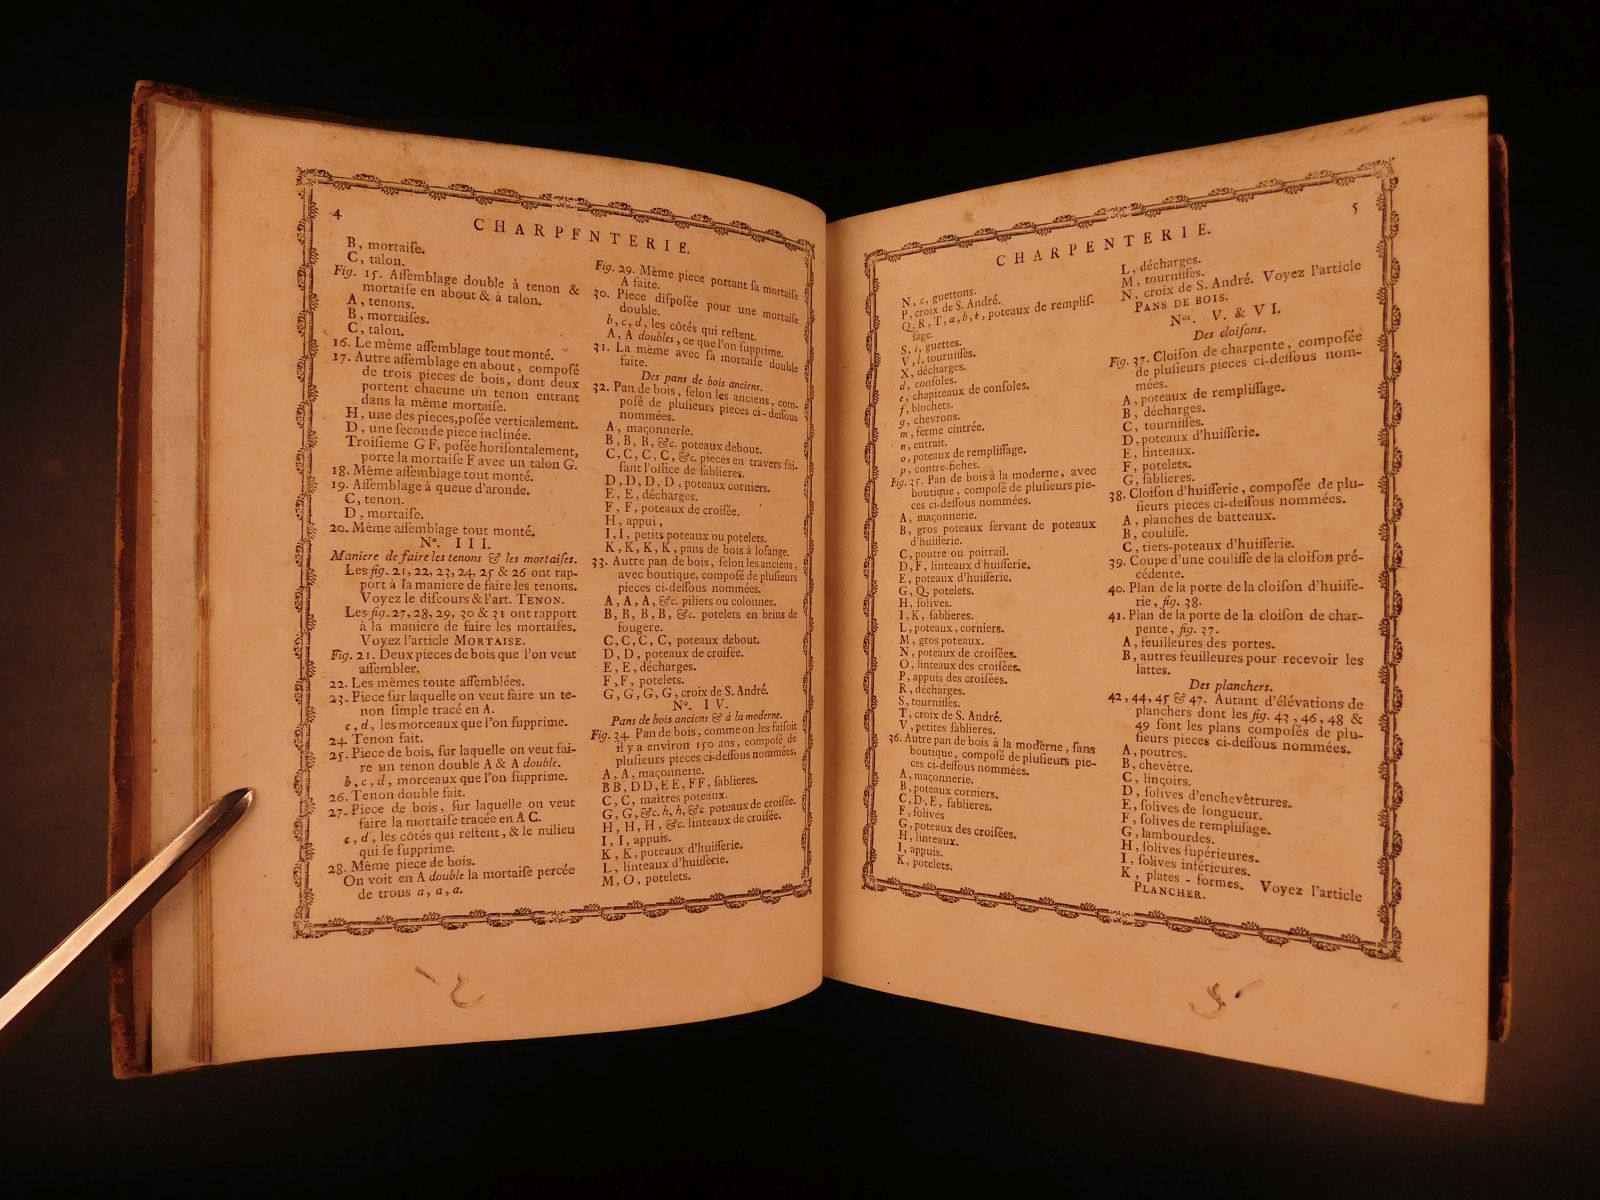 4
CHARPENTERIE.
B, mortaiſe.
C, talon.
Fig. 15. Aſſemblage double à tenon &
mortaiſe en about & à talon.
A, tenons.
B, mortaiſes.
C, talon.
16. Le même aſſemblage tout monté.
17. Autre aſſemblage en about, compoſé
de trois pieces de bois, dont deux
portent chacune un tenon entrant
dans la même mortaiſe.
H, une des pieces, poſée verticalement.
D, une ſeconde piece inclinée.
Troiſieme GF, poſée horiſontalement,
porte la mortaiſe F avec un talon G.
18. Même aſſemblage tout monté.
19. Aſſemblage à queue d'aronde.
C, tenon.
D, mortaiſe.
20. Même aſſemblage tout monté.
Nº. III.
Maniere de faire les tenons & les mortaiſes.
Les fig. 21, 22, 23, 24, 25 & 26 ont rap-
port à la maniere de faire les tenons.
Voyez le diſcours & l'art. TENON.
Les fig. 27, 28, 29, 30 & 31 ont rapport
à la maniere de faire les mortaiſes.
Voyez l'article MORTAISE.
Fig. 21. Deux pieces de bois que l'on veut
aſſembler.
22. Les mêmes toute aſſemblées.
23. Piece ſur laquelle on veut faire un te-
non ſimple tracé en A.
c, d, les morceaux que l'on ſupprime.
24. Tenon fait.
25. Piece de bois, ſur laquelle on veut fai-
re un tenon double A & A double.
b, c, d, morceaux que l'on ſupprime.
26. Tenon double fait.
27. Piece de bois, ſur laquelle on veut
faire la mortaiſe tracée en A C.
c, d, les côtés qui reſtent, & le milieu
qui ſe ſupprime.
28. Même piece de bois.
On voit en A double la mortaiſe percée
de trous a, a, a.
Fig. 29. Même piece portant ſa mortaiſe
A faite.
30. Piece diſpoſée pour une mortaiſe
double.
b, c, d, les côtés qui reſtent.
A, A doubles, ce que l'on ſupprime.
31. La même avec ſa mortaiſe double
faite.
Des pans de bois anciens.
32. Pan de bois, ſelon les anciens, com-
poſé de pluſieurs pieces ci-deſſous
nommées.
A, maçonnerie.
B, B, B, &c. poteaux debout.
C, C, C, C, &c. pieces en travers fai-
ſant l'office de ſablieres.
D, D, D, D, poteaux corniers.
E, E, décharges.
F, F, poteaux de croiſée.
H, appui,
I, I, petits poteaux ou potelets.
K, K, K, K, pans de bois à loſange.
33. Autre pan de bois, ſelon les anciens,
avec boutique, compoſé de pluſieurs
pieces ci-deſſous nommées.
A, A, A, &c. piliers ou colonnes.
B, B, B, B, &c. potelets en brins de
fougere.
C, C, C, C, poteaux debout.
D, D, poteaux de croiſée.
E, E, décharges.
F, F, potelets.
G, G, G, G, croix de S. André.
Nº. IV.
Pans de bois anciens & à la moderne.
Fig. 34. Pan de bois, comme on les faiſoit
il y a environ 150 ans, compoſé de
pluſieurs pieces ci-deſſous nommées.
A, A, maçonnerie.
BB, DD, EE, FF, ſablieres.
C, C, maîtres poteaux.
G, G, &c. h, h, &c. poteaux de croiſée.
H, H, H, &c. linteaux de croiſée.
I, I, appuis.
K, K, poteaux d'huiſſerie.
L, linteaux d'huiſſerie.
M, O, potelets.
5
CHARPENTERIE.
N, c, guettons.
P, croix de S. André.
Q, R, T, a, b, k, poteaux de rempliſ-
ſage.
S, i, guettes.
V, l, tourniſſes.
X, décharges.
d, conſoles.
e, chapiteaux de conſoles.
f, blochets.
g, chevrons.
m, ferme cintrée.
n, entrait.
o, poteaux de rempliſſage.
p, contre-fiches.
Fig. 35. Pan de bois à la moderne, avec
boutique, compoſé de pluſieurs pie-
ces ci-deſſous nommées.
A, maçonnerie.
B, gros poteaux ſervant de poteaux
d'huiſſerie.
C, poutre ou poitrail.
D, F, linteaux d'huiſſerie.
E, poteaux d'huiſſerie.
G, Q, potelets.
H, ſolives.
I, K, ſablieres.
L, poteaux, corniers.
M, gros poteaux.
N, poteaux de croiſées.
O, linteaux des croiſées.
P, appuis des croiſées.
R, décharges.
S, tourniſſes.
T, croix de S. André.
V, petites ſablieres.
36. Autre pan de bois à la moderne, ſans
boutique, compoſé de pluſieurs pie-
ces ci-deſſous nommées.
A, maçonnerie.
B, poteaux corniers.
C, D, E, ſablieres.
F, ſolives.
G, poteaux des croiſées.
H, linteaux.
I, appuis.
K, potelets.
L, décharges.
M, tourniſſes.
N, croix de S. André. Voyez l'article
PANS DE BOIS.
Nos. V. & VI.
Des cloiſons.
Fig. 37. Cloiſon de charpente, compoſée
de pluſieurs pieces ci-deſſous nom-
mées.
A, poteaux de rempliſſage.
B, décharges.
C, tourniſſes.
D, poteaux d'huiſſerie.
E, linteaux.
F, potelets.
G, ſablieres.
38. Cloiſon d'huiſſerie, compoſée de plu-
ſieurs pieces ci-deſſous nommées.
A, planches de batteaux.
B, couliſſe.
C, tiers-poteaux d'huiſſerie.
39. Coupe d'une couliſſe de la cloiſon pré-
cédente.
40. Plan de la porte de la cloiſon d'huiſſe-
rie, fig. 38.
41. Plan de la porte de la cloiſon de char-
pente, fig. 37.
A, feuilleures des portes.
B, autres feuilleures pour recevoir les
lattes.
Des planchers.
42, 44, 45 & 47. Autant d'élévations de
planchers dont les fig. 43, 46, 48 &
49 ſont les plans compoſés de plu-
ſieurs pieces ci-deſſous nommées.
A, poutres.
B, chevêtre.
C, linçoirs.
D, ſolives d'enchevêtrures.
E, ſolives de longueur.
F, ſolives de rempliſſage.
G, lambourdes.
H, ſolives ſupérieures.
I, ſolives inférieures.
K, plates-formes. Voyez l'article
PLANCHER.